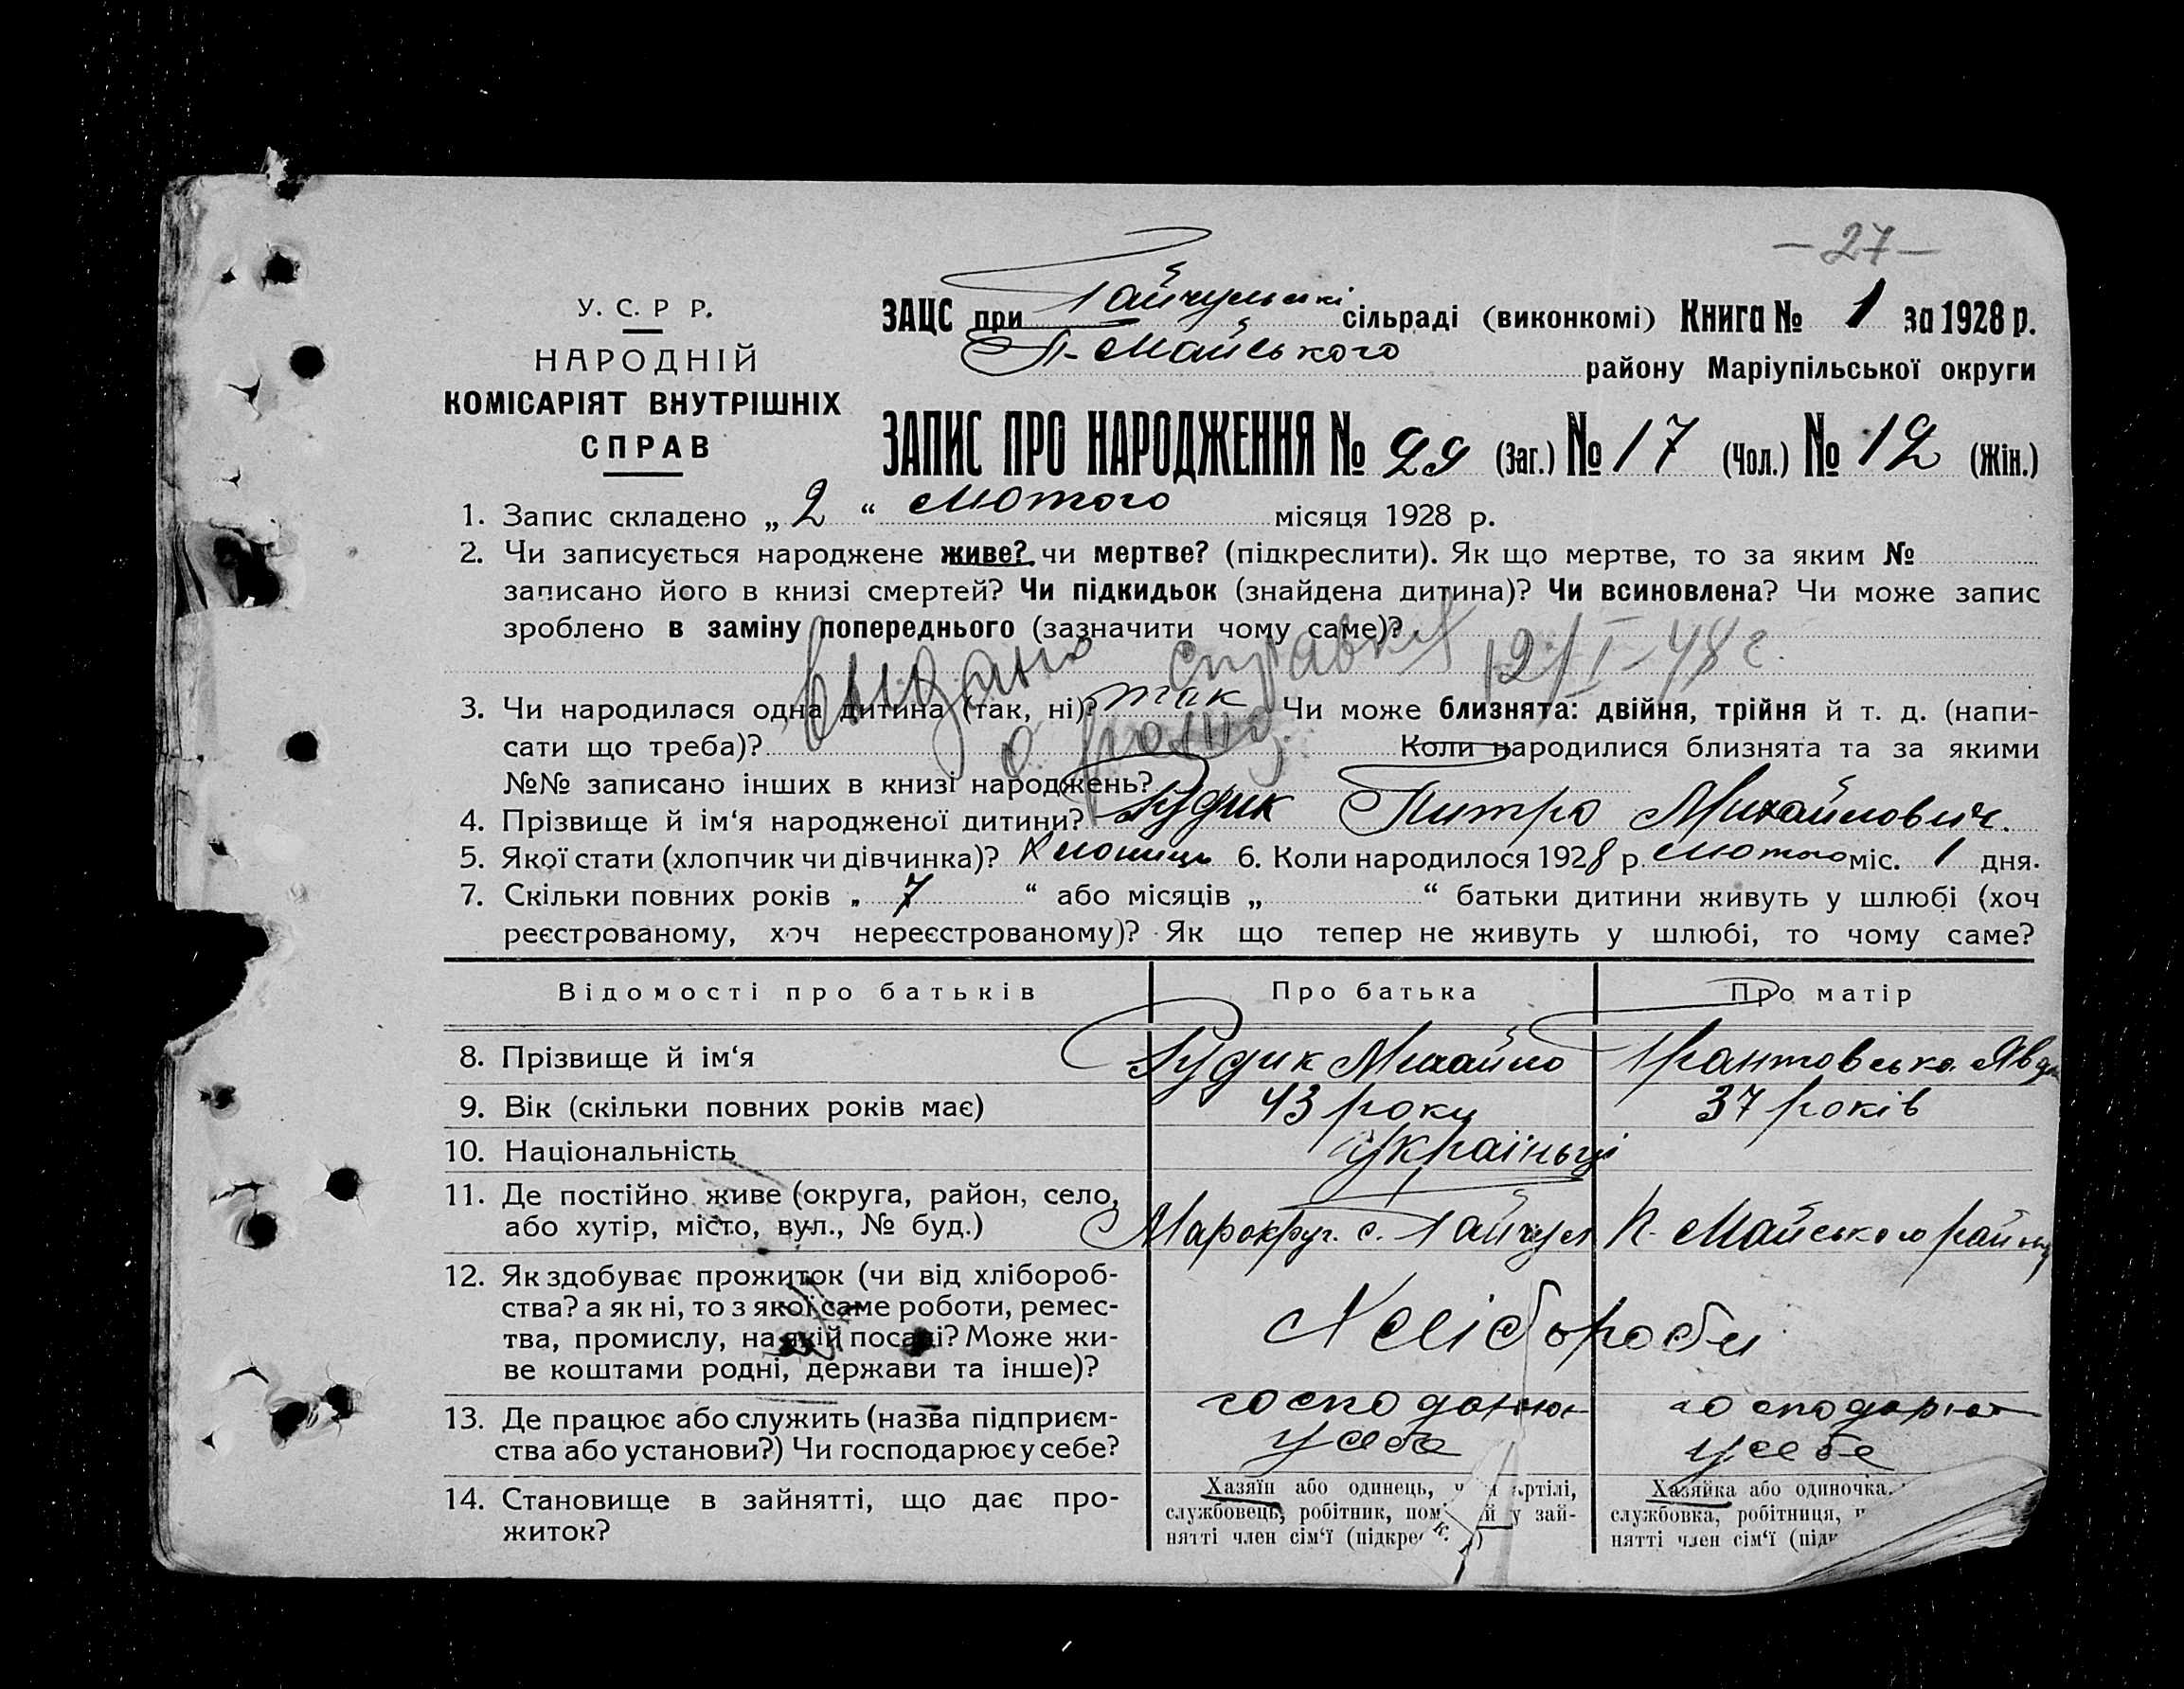 — 27 —
У. С. Р Р.
НАРОДНІЙ
КОМІСАРІЯТ ВНУТРІШНІХ
СПРАВ
ЗАЦС при Гайчульскі сільраді (виконкомі) Книга № 1 за 1928 р.
П-Майського району Маріупільської округи
ЗАПИС ПРО НАРОДЖЕННЯ № 29 (Заг.) № 17 (Чол.) № 12 (Жін.)
1. Запис складено „ 2 “ лютого місяця 1928 р.
2. Чи записується народжене живе? чи мертве? (підкреслити). Як що мертве, то за яким №
записано його в книзі смертей? Чи підкидьок (знайдена дитина)? Чи всиновлена? Чи може запис
зроблено в заміну попереднього (зазначити чому саме)?
выдано справка 12/I-48 г.
3. Чи народилася одна дитина (так, ні)? так Чи може близнята: двійня, трійня й т. д. (напи-
сати що треба)? о рожд. Коли народилися близнята та за якими
№№ записано інших в книзі народжень?
4. Прізвище й ім‘я народженої дитини? Рудик Питро Михайлович.
5. Якої стати (хлопчик чи дівчинка)? Хлопиць 6. Коли народилося 1928 р. лютого міс. 1 дня.
7. Скільки повних років „ 7 “ або місяців „ “ батьки дитини живуть у шлюбі (хоч
реєстрованому, хоч нереєстрованому)? Як що тепер не живуть у шлюбі, то чому саме?
Відомості про батьків Про батька Про матір
8. Прізвище й ім‘я Рудик Михайло Грантовська Явд
9. Вік (скільки повних років має) 43 року 37 років
10. Національність Україньці
11. Де постійно живе (округа, район, село,
або хутір, місто, вул., № буд.) Марокруг. с. Гайчул П-Майського району
12. Як здобуває прожиток (чи від хлібороб-
ства? а як ні, то з якої саме роботи, ремес-
тва, промислу, на якій посаді? Може жи-
ве коштами родні, держави та інше)?
Хлібороби
13. Де працює або служить (назва підприєм-
ства або установи?) Чи господарює у себе?
господарює господарює
у себе у себе
14. Становище в зайнятті, що дає про-
житок?
Хазяїн або одинець, артілі,
службовець, робітник, пом й у зай-
нятті член сім‘ї (підкре
Хазяйка або одиночка,
службовка, робітниця,
нятті член сім‘ї (підк